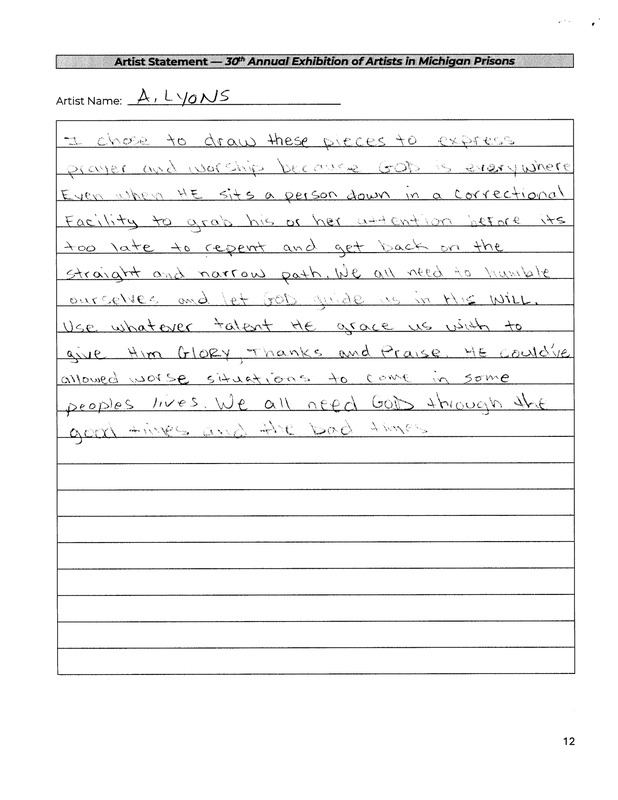 Artist Statement — 30th Annual Exhibition of Artists in Michigan Prisons
Artist Name: A. LYONS
I chose to draw these pieces to express
prayer and worship because GOD is everywhere
Even when HE sits a person down in a correctional
Facility to grab his or her attention before its
too late to repent and get back on the
straight and narrow path. We all need to humble
ourselves and let GOD guide us in His WILL.
Use whatever talent HE grace us with to
give Him GLORY, Thanks and Praise. HE could've
allowed worse situations to come in some
peoples lives. We all need GOD through the
good times and the bad times
12